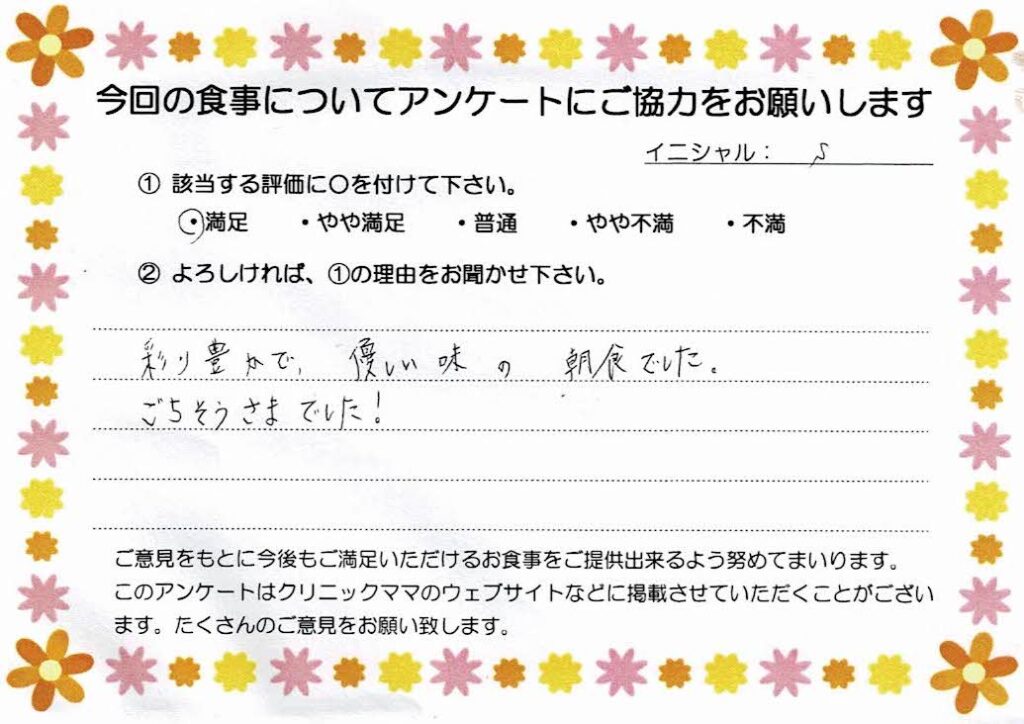 今回の食事についてアンケートにご協力をお願いします
イニシャル： S
① 該当する評価に〇を付けて下さい。
・満足 ・やや満足 ・普通 ・やや不満 ・不満
② よろしければ、①の理由をお聞かせ下さい。
彩り豊かで、優しい味の朝食でした。
ごちそうさまでした！
ご意見をもとに今後もご満足いただけるお食事をご提供出来るよう努めてまいります。
このアンケートはクリニックママのウェブサイトなどに掲載させていただくことがござい
ます。たくさんのご意見をお願い致します。